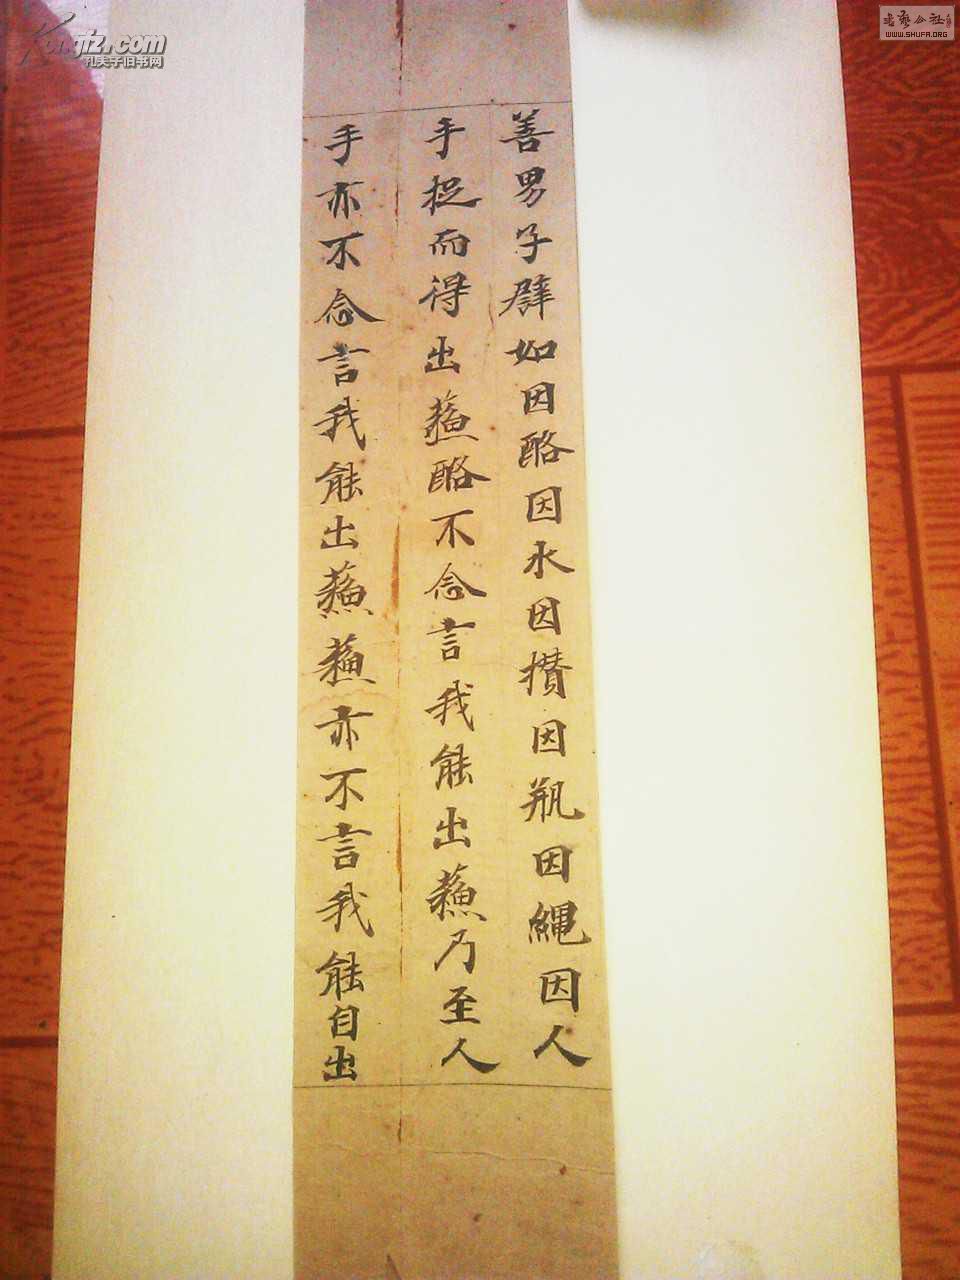 善男子譬如因酪因水因攢因瓶因繩因人
手捉而得出蘓酪不念言我能出蘓乃至人
手亦不念言我能出蘓蘓亦不言我能自出
Kongfz.com
孔夫子旧书网
书艺公社
WWW.SHUFA.ORG